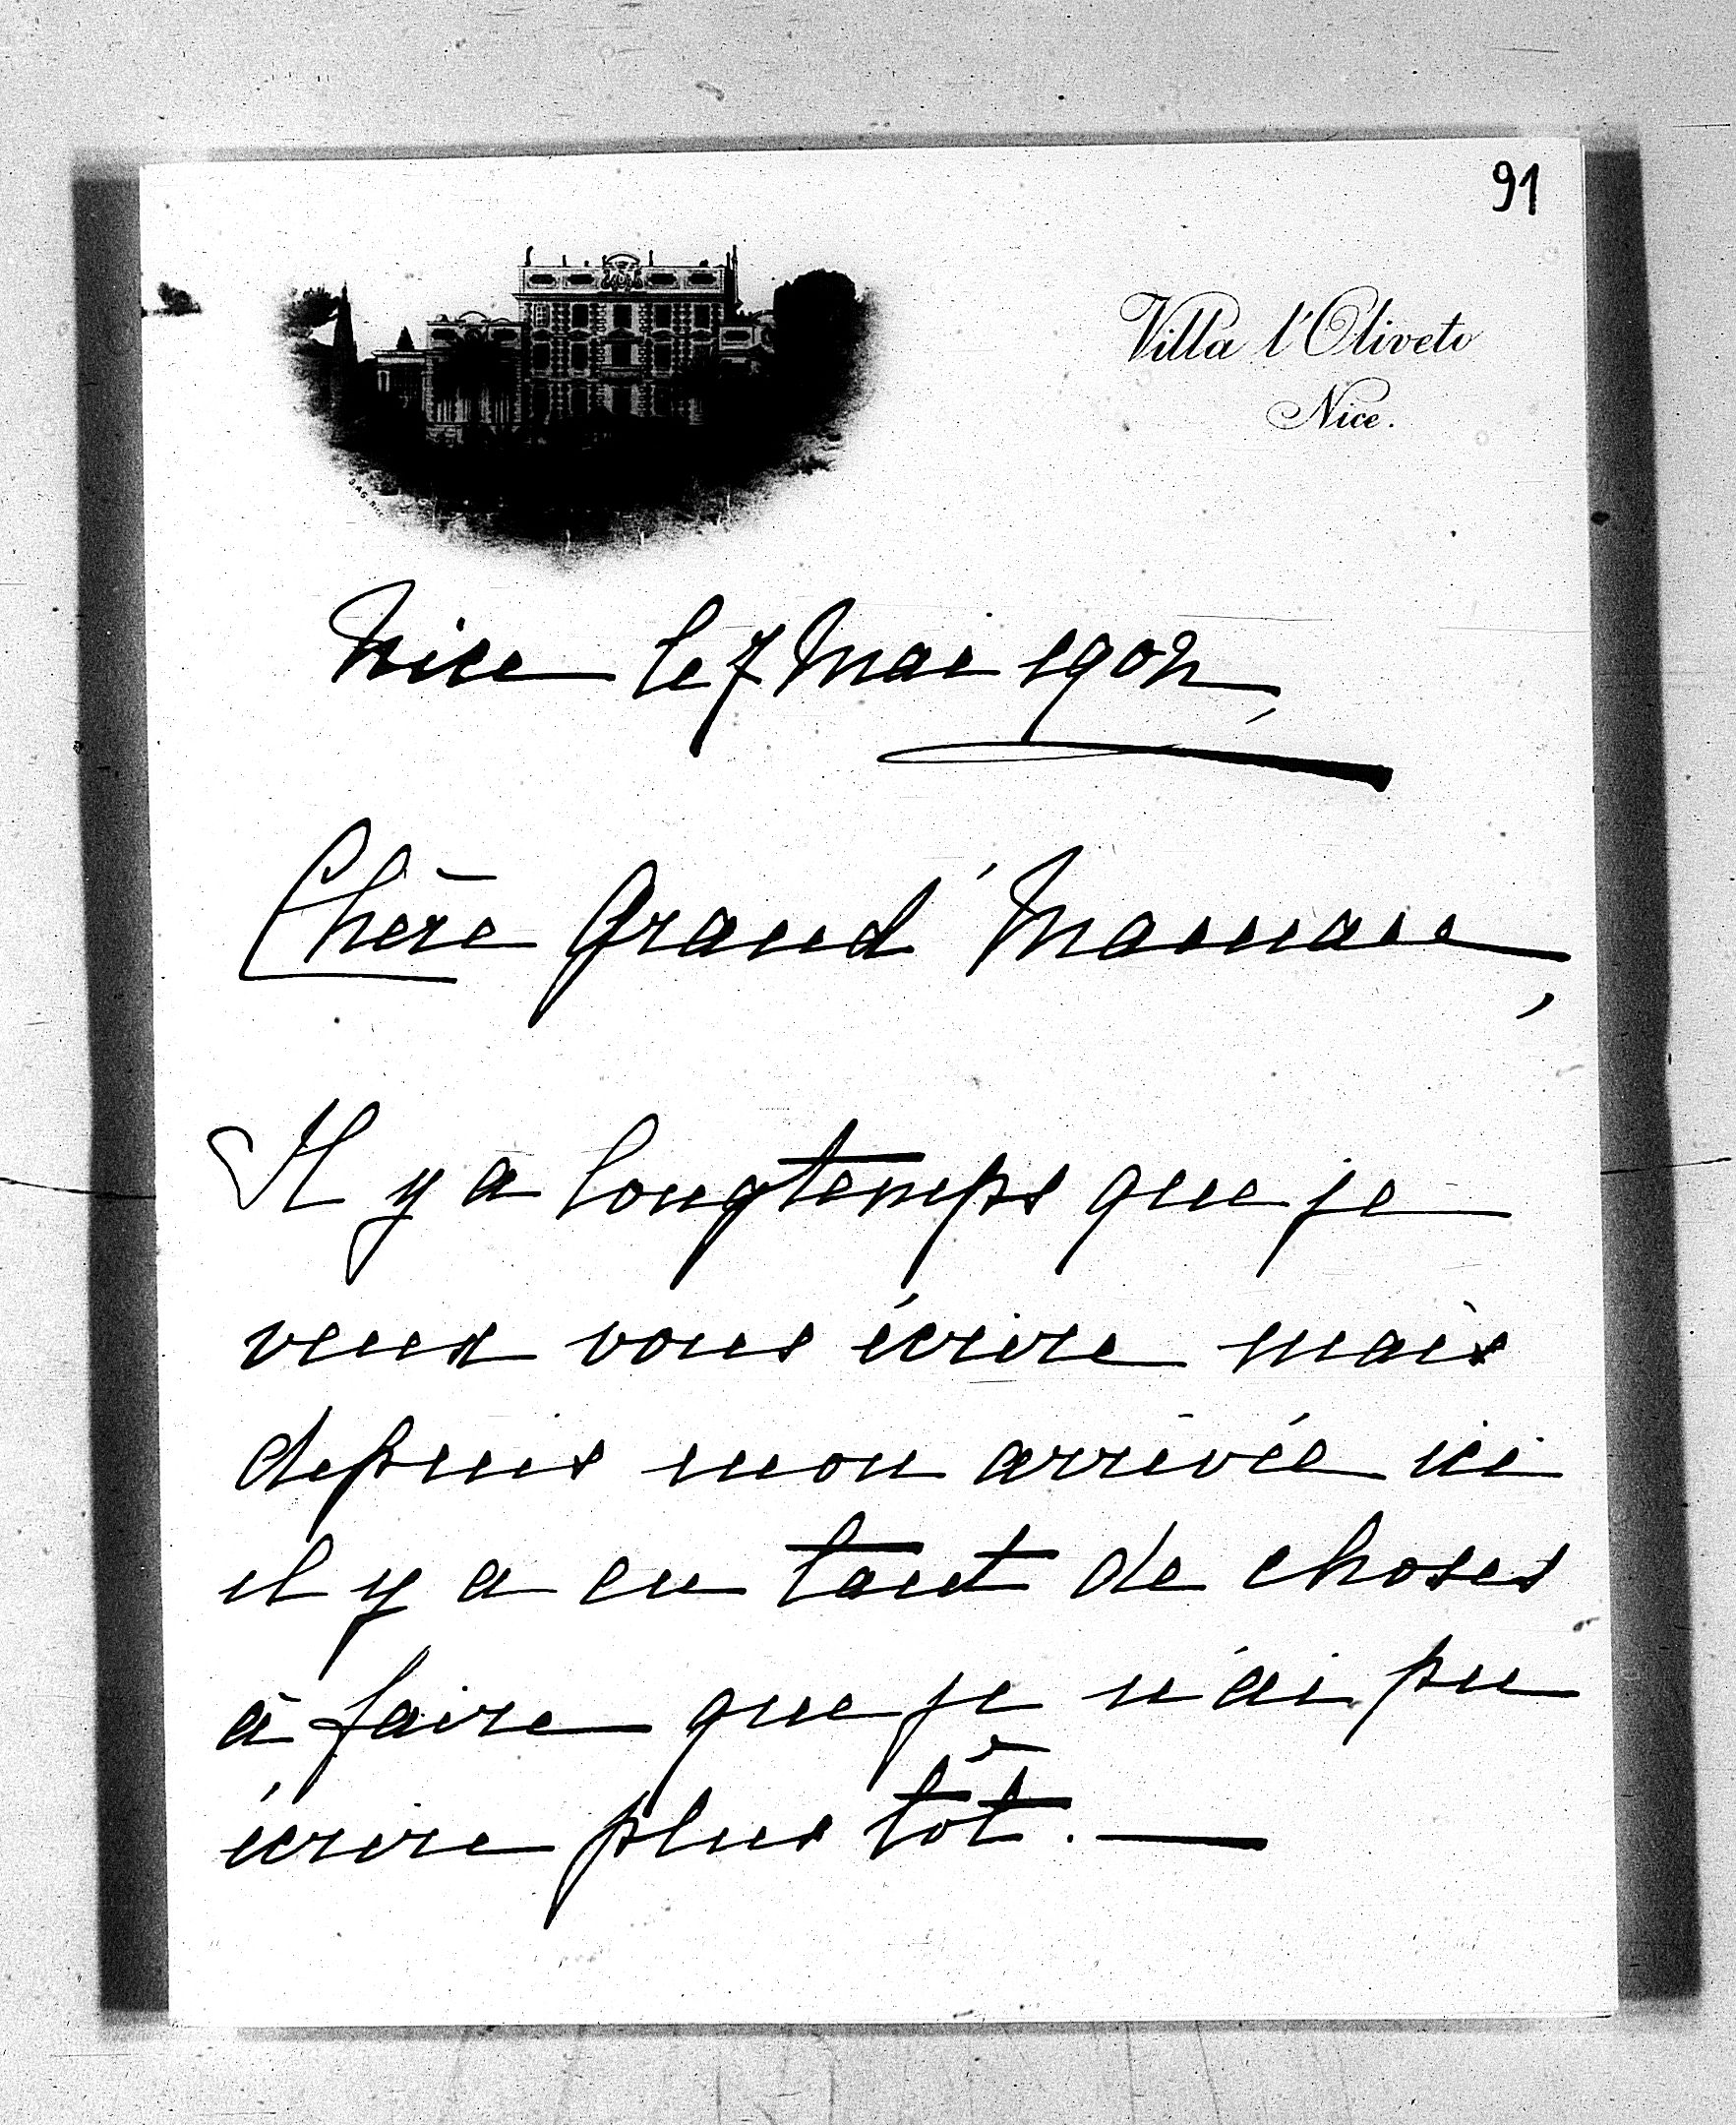 91
Villa l'Oliveto
Nice.
Nice le 7 Mai 1902,
Chère Grand'Maman,
Il y a longtemps que je
veux vous écrire mais
depuis mon arrivée ici
il y a eu tant de choses
à faire que je n'ai pu
écrire plus tôt. —